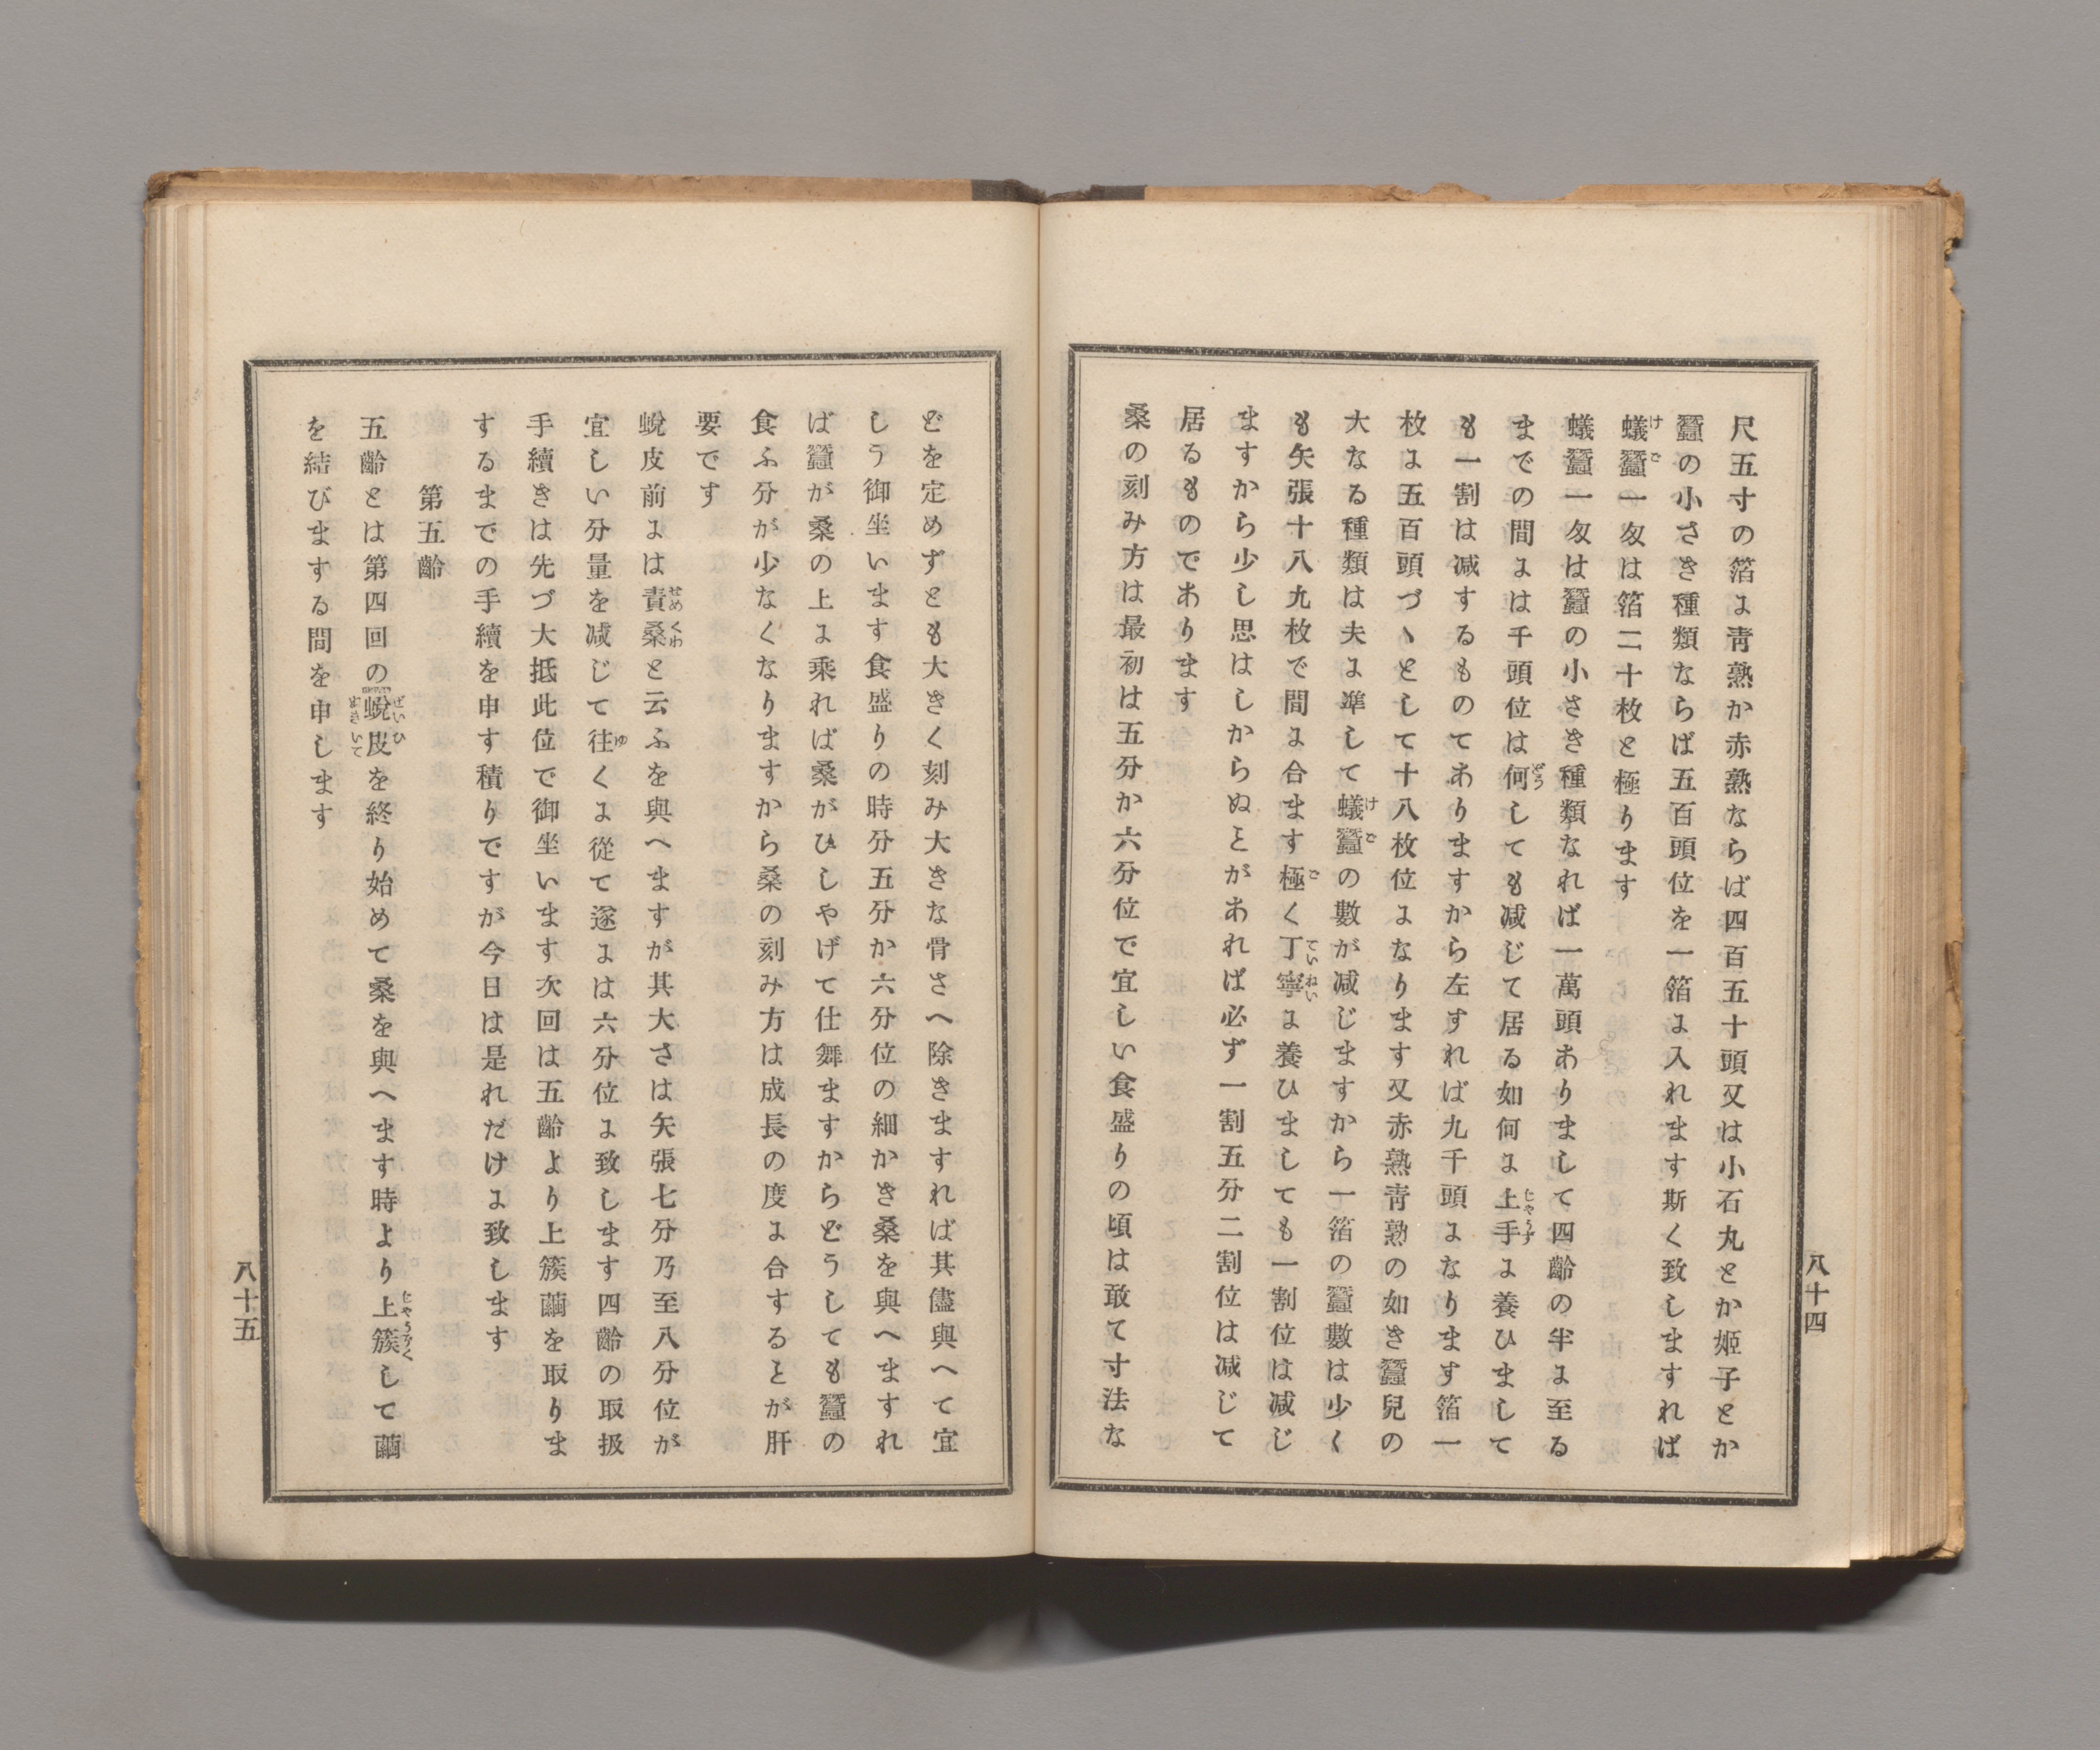 尺五寸の箔に靑熟か赤熟ならば四百五十頭又は小石丸とか姬子とか
蠶の小さき種類ならば五百頭位を一箔に入れます斯く致しますれば
蟻蠶一匁は箔二十枚と極ります
蟻蠶一匁は蠶の小さき種類なれば一萬頭ありまして四齡の半に至る
までの間には千頭位は何しても减じて居る如何に上手に養ひまして
も一割は减するものてありますから左すれば九千頭になります箔一
枚に五百頭づヽとして十八枚位になります又赤熟靑熟の如き蠶兒の
大なる種類は夫に準して蟻蠶の數が减じますから一箔の蠶數は少く
も矢張十八九枚で間に合ます極く丁寧に養ひましても一割位は减じ
ますから少し思はしからぬことがあれば必ず一割五分二割位は减じて
居るものであります
桑の刻み方は最初は五分か六分位で宜しい食盛りの頃は敢て寸法な
八十四
どを定めずとも大きく刻み大きな骨さへ除きますれば其儘與へて宜
しう御坐います食盛りの時分五分か六分位の細かき桑を與へますれ
ば蠶が桑の上に乘れば桑がひしやげて仕舞ますからどうしても蠶の
食ふ分が少なくなりますから桑の刻み方は成長の度に合することが肝
要です
蛻皮前には責桑と云ふを與へますが其大さは矢張七分乃至八分位が
宜しい分量を减じて往くに從て遂には六分位に致します四齡の取扱
手續きは先づ大抵此位で御坐います次回は五齡より上簇繭を取りま
するまでの手續を申す積りですが今日は是れだけに致します
第五齡
五齡とは第四回の蛻皮を終り始めて桑を與へます時より上簇して繭
を結びまする間を申します
八十五